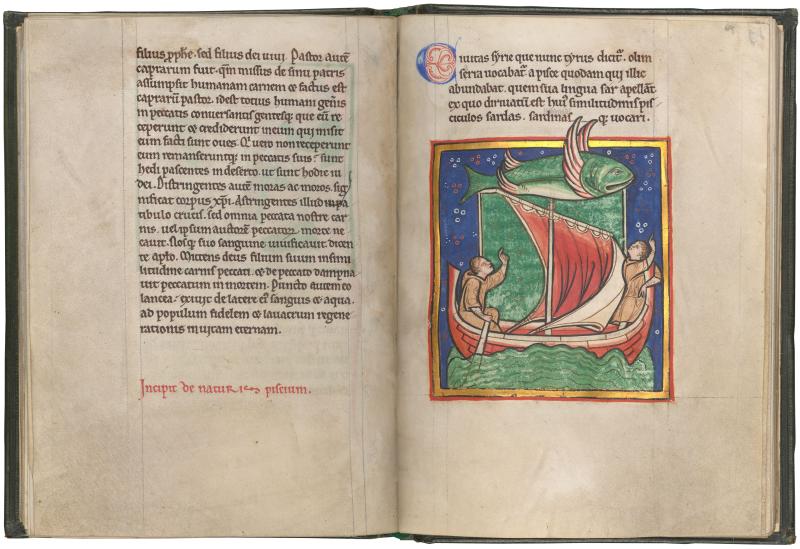 filius ꝓphe. sed filius dei uiui. Pastor autē
caprarum fuit. qm̄ missus de sinu patris
assumpsit humanam carnem et factus est
caprarū pastor. idest totius humani gen̄is
in peccatis conuersantis gentesq; que eū re
ceperunt et crediderunt in eum qui misit
eum facti sunt oues. Qi uero non receperunt
eum remanseruntq; in peccatis suis. sunt
hedi pascentes in deserto. ut sunt hodie iu
dei. Distringentes autē moras ac moros. sig
nificat corpus xp̄i. Astringentes illud
tibulo crucis. sed omnia peccata nostre car
nis. uel ipsum auctorē peccatorꝝ morte ne
cauit. Nosq; suo sanguine uiuificauit. dicen
te apło. Mittens deus filium suum in simi
litudine carnis peccati. et de peccato dampna
uit peccatum in mortem. Puncto autem eo
lancea. exiuit de latere eiꝰ sanguis et aqua.
ad populum fidelem et lauacrum regene
rationis in uitam eternam.
Incipit de natur piscium.
Ciuitas syrie que nunc tyrus dicitᷣ. olim
serra uocabatᷣ a pisce quodam qui illic
abundabat. quem sua lingua sar apellāt
ex quo diriuatū est huiꝰ similitudinis pis
ciculos sardas. sardinas q; uocari.